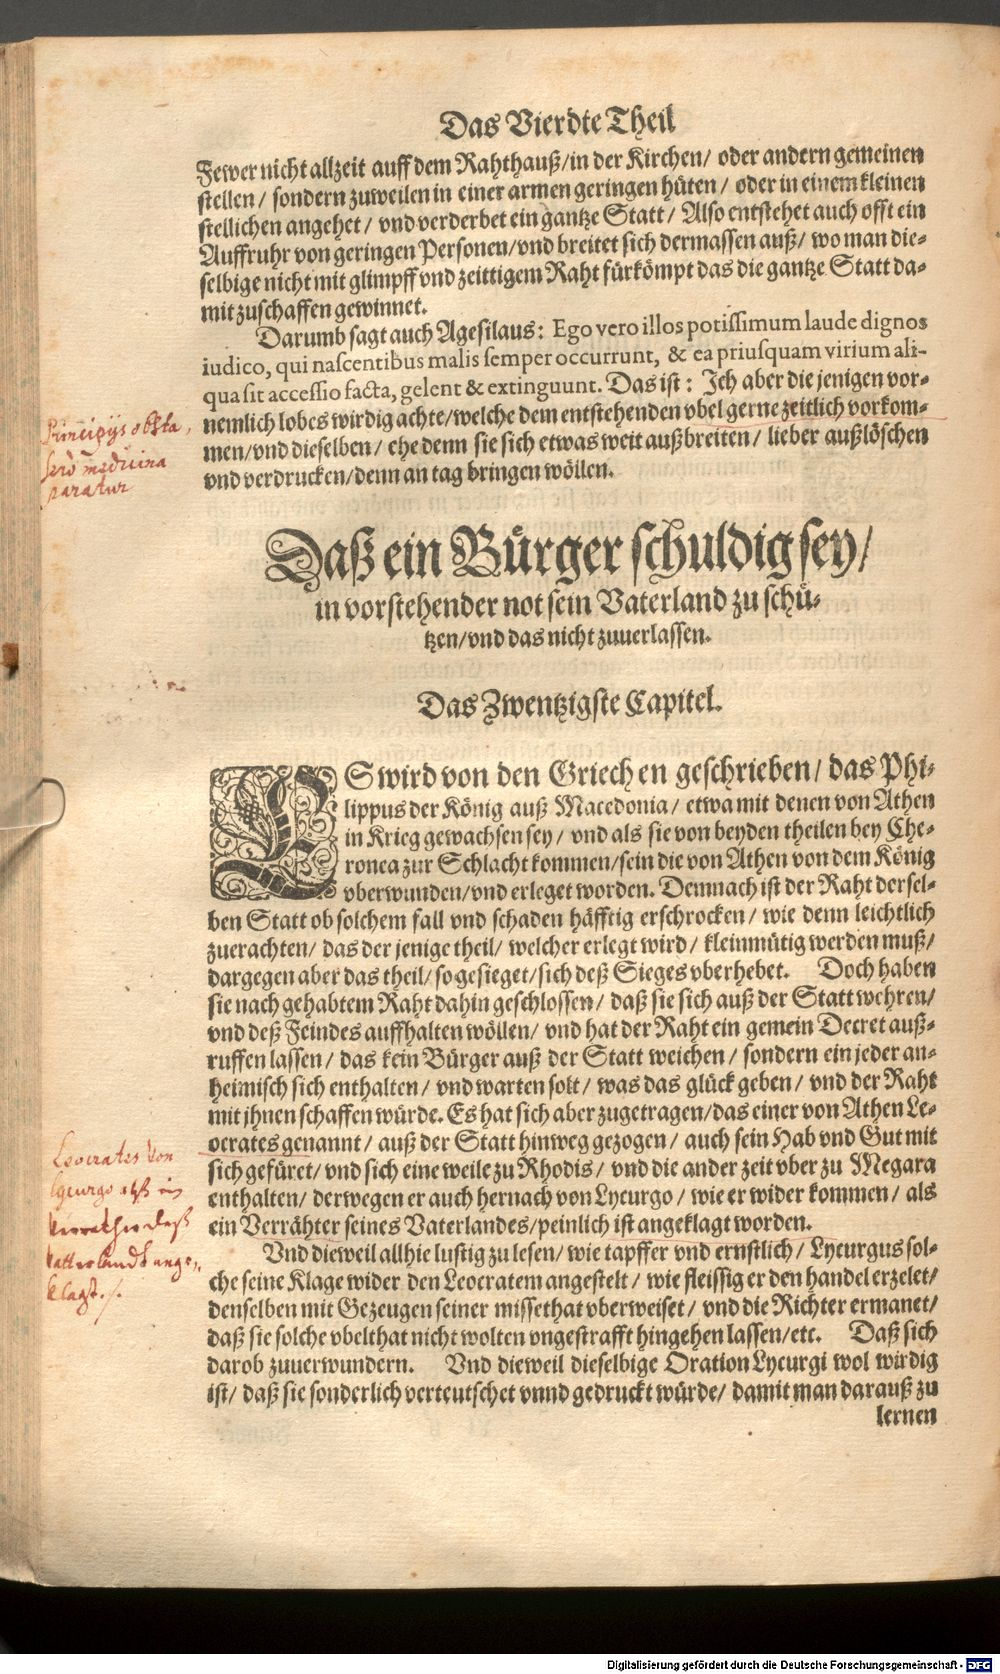 Das Vierdte Theil
Fewer nicht allzeit auff dem Rahthauß/in der Kirchen/ oder andern gemeinen
stellen / sondern zuweilen in einer armen geringen hüten / oder in einem kleinen
stellichen angehet / vnd verderbet ein gantze Statt / Also entstehet auch offt ein
Auffruhr von geringen Personen/vnd breitet sich dermassen auß/ wo man die-
selbige nicht mit glimpff vnd zeittigem Raht fürkömpt das die gantze Statt da-
mit zuschaffen gewinnet.
Darumb sagt auch Agesilaus: Ego vero illos potissimum laude dignos
iudico, qui nascentibus malis semper occurrunt, & ea priusquam virium ali-
qua sit accessio facta, gelent & extinguunt. Das ist : Ich aber die jenigen vor-
nemlich lobes wirdig achte/welche dem entstehenden vbel gerne zeitlich vorkom-
men/vnd dieselben / ehe denn sie sich etwas weit außbreiten / lieber außlöschen
vnd verdrucken/denn an tag bringen wöllen.
Principijs obsta,
sero medicina
paratur
Daß ein Bürger schuldig sey/
in vorstehender not sein Vaterland zu schü-
tzen/vnd das nicht zuuerlassen.
Das Zwentzigste Capitel.
ES wird von den Griechen geschrieben/ das Phi-
lippus der König auß Macedonia / etwa mit denen von Athen
in Krieg gewachsen sey / vnd als sie von beyden theilen bey Che-
ronea zur Schlacht kommen/sein die von Athen von dem König
vberwunden/vnd erleget worden. Demnach ist der Raht dersel-
ben Statt ob solchem fall vnd schaden häfftig erschrocken / wie denn leichtlich
zuerachten/ das der jenige theil/ welcher erlegt wird / kleinmütig werden muß/
dargegen aber das theil/ so gesieget/sich deß Sieges vberhebet. Doch haben
sie nach gehabtem Raht dahin geschlossen / daß sie sich auß der Statt wehren/
vnd deß Feindes auffhalten wöllen/ vnd hat der Raht ein gemein Decret auß-
ruffen lassen / das kein Bürger auß der Statt weichen / sondern ein jeder an-
heimisch sich enthalten / vnd warten solt / was das glück geben / vnd der Raht
mit jhnen schaffen würde. Es hat sich aber zugetragen/das einer von Athen Le-
ocrates genannt / auß der Statt hinweg gezogen / auch sein Hab vnd Gut mit
sich gefüret/ vnd sich eine weile zu Rhodis / vnd die ander zeit vber zu Megara
enthalten/ derwegen er auch hernach von Lycurgo / wie er wider kommen / als
ein Verrähter seines Vaterlandes/peinlich ist angeklagt worden.
Leocrates von
Lycurgo alß ein
Verrather deß
Vatterlandts ange-
klagt./.
Vnd dieweil allhie lustig zu lesen/ wie tapffer vnd ernstlich / Lycurgus sol-
che seine Klage wider den Leocratem angestelt / wie fleissig er den handel erzelet/
denselben mit Gezeugen seiner missethat vberweiset / vnd die Richter ermanet/
daß sie solche vbelthat nicht wolten vngestrafft hingehen lassen/etc. Daß sich
darob zuuerwundern. Vnd dieweil dieselbige Oration Lycurgi wol wirdig
ist/ daß sie sonderlich verteutschet vnnd gedruckt würde/ damit man darauß zu
lernen
Digitalisierung gefördert durch die Deutsche Forschungsgemeinschaft - DFG